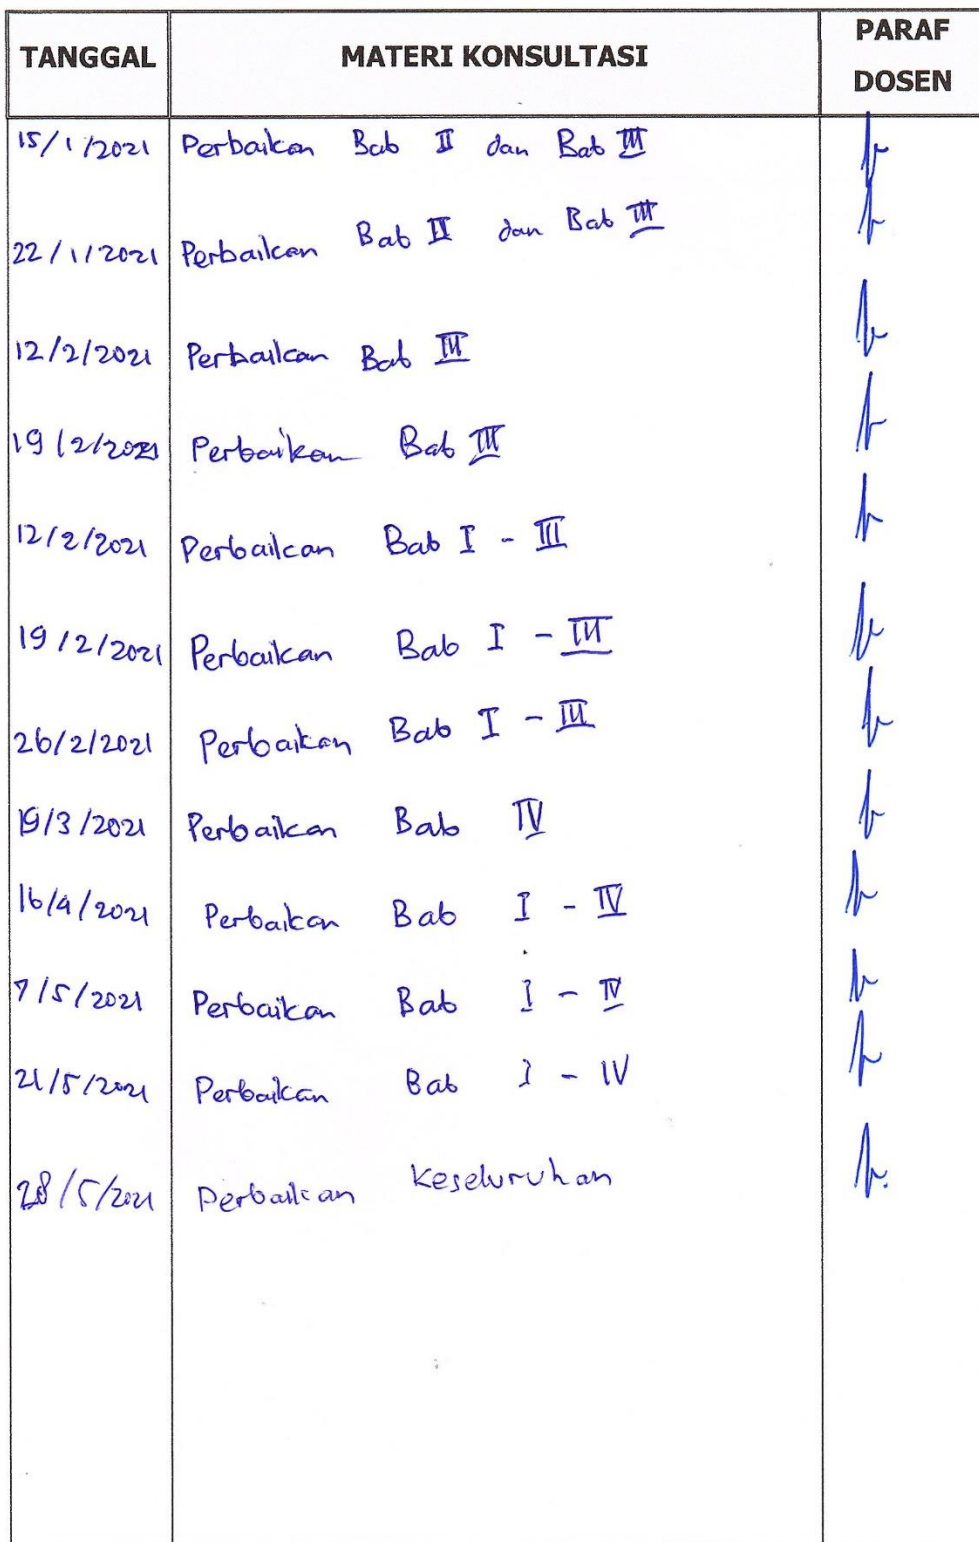 TANGGAL MATERI KONSULTASI PARAF DOSEN
15/1/2021 Perbaikan Bab II dan Bab III
22/1/2021 Perbaikan Bab II dan Bab III
12/2/2021 Perbaikan Bab III
19/2/2021 Perbaikan Bab III
12/2/2021 Perbaikan Bab I - III
19/2/2021 Perbaikan Bab I - III
26/2/2021 Perbaikan Bab I - III
19/3/2021 Perbaikan Bab IV
16/4/2021 Perbaikan Bab I - IV
7/5/2021 Perbaikan Bab I - IV
21/5/2021 Perbaikan Bab I - IV
28/5/2021 Perbaikan Keseluruhan